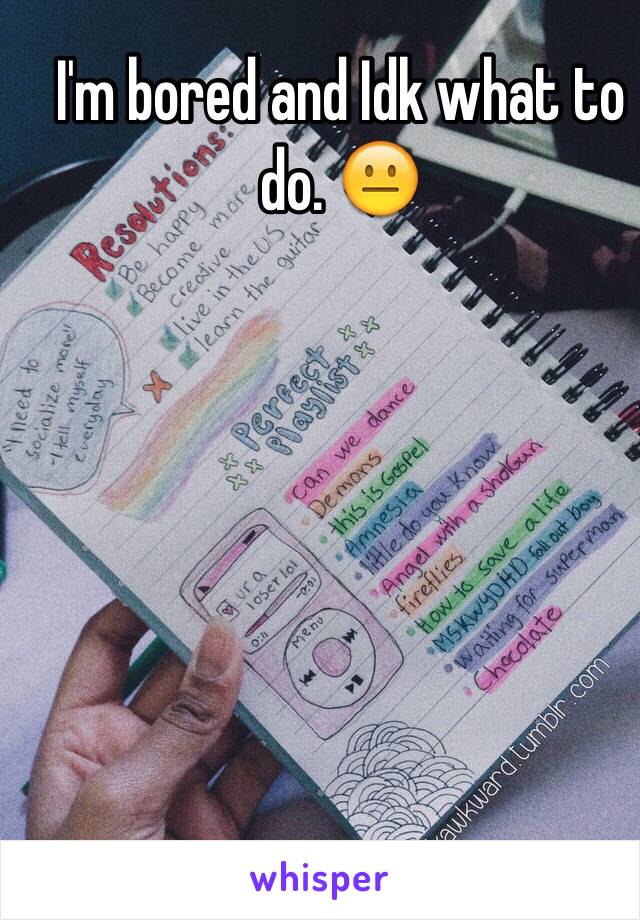 I'm bored and Idk what to
do. 😐
Resolutions:
Be happy
Become more
creative
live in the US
learn the guitar
"I need to
socialize more"
-I tell myself
everyday
Perfect
Playlist
Can we dance
Demons
this is Gospel
Amnesia
little do you know
Angel with a shotgun
fireflies
How to save a life
MSKWYDITD fall out boy
waiting for superman
Chocolate
ur a
loser lol
0:11
-0:01
Menu
awkward.tumblr.com
whisper